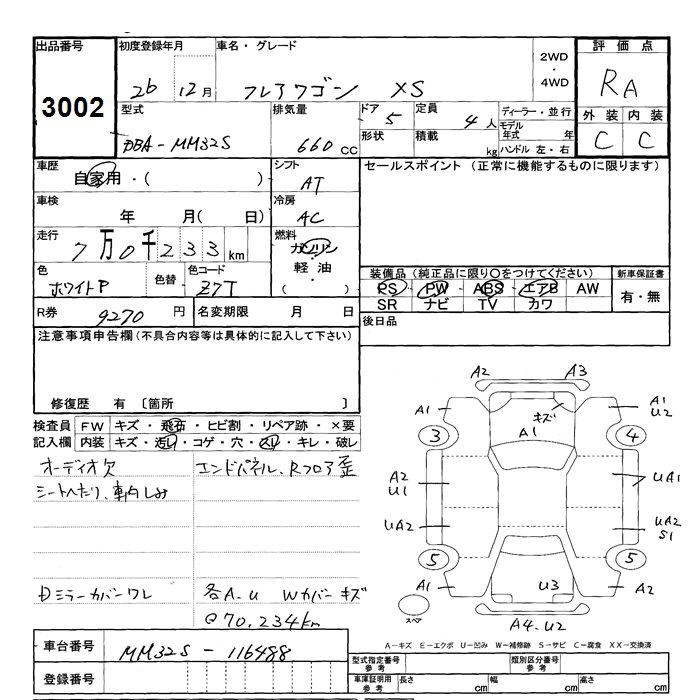 出品番号 初度登録年月 車名・グレード 2WD・4WD 評価点
3002 26 12月 フレアワゴン XS RA
型式 排気量 ドア 5 定員 4人 ディーラー・並行 外装 内装
DBA-MM32S 660cc 形状 積載 kg モデル年式 年 C C
ハンドル 左・右
車歴 自家用・( ) シフト AT セールスポイント (正常に機能するものに限ります)
車検 年 月( 日) 冷房 AC
走行 7万0千233km 燃料 ガソリン・軽油・
色 ホワイトP 色替 色コード Z7T 装備品(純正品に限り○をつけてください) 新車保証書
PS PW ABS エアB AW 有・無
SR ナビ TV カワ
R券 9270円 名変期限 月 日 後日品
注意事項申告欄(不具合内容等は具体的に記入して下さい)
修復歴 有 〔箇所 〕
検査員 FW キズ・飛石・ヒビ割・リペア跡・×要
記入欄 内装 キズ・汚レ・コゲ・穴・スレ・キレ・破レ
オーディオ欠 エンドパネル、Rフロア歪
シートへたり、車内しみ
Dミラーカバーワレ 各A-U Wカバーキズ
@70,234km
A2 A3
A1 キズ A1 U2
3 A1 4
A2 U1 UA1
UA2 UA2 S1
5 5
A1 U3 A2
スペア A4-U2
A-キズ E-エクボ U-凹み W-補修跡 S-サビ C-腐食 XX-交換済
車台番号 MM32S-116488
登録番号
型式指定番号 参考 類別区分番号 参考
車庫証明用 参考 長さ cm 幅 cm 高さ cm